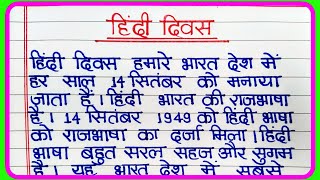 हिंदी दिवस
हिंदी दिवस हमारे भारत देश में
हर साल 14 सितंबर को मनाया
जाता हैं । हिंदी भारत की राजभाषा
है । 14 सितंबर 1949 को हिंदी भाषा
को राजभाषा का दर्जा मिला । हिंदी
भाषा बहुत सरल, सहज और सुगम
हैं । यह भारत देश में सबसे